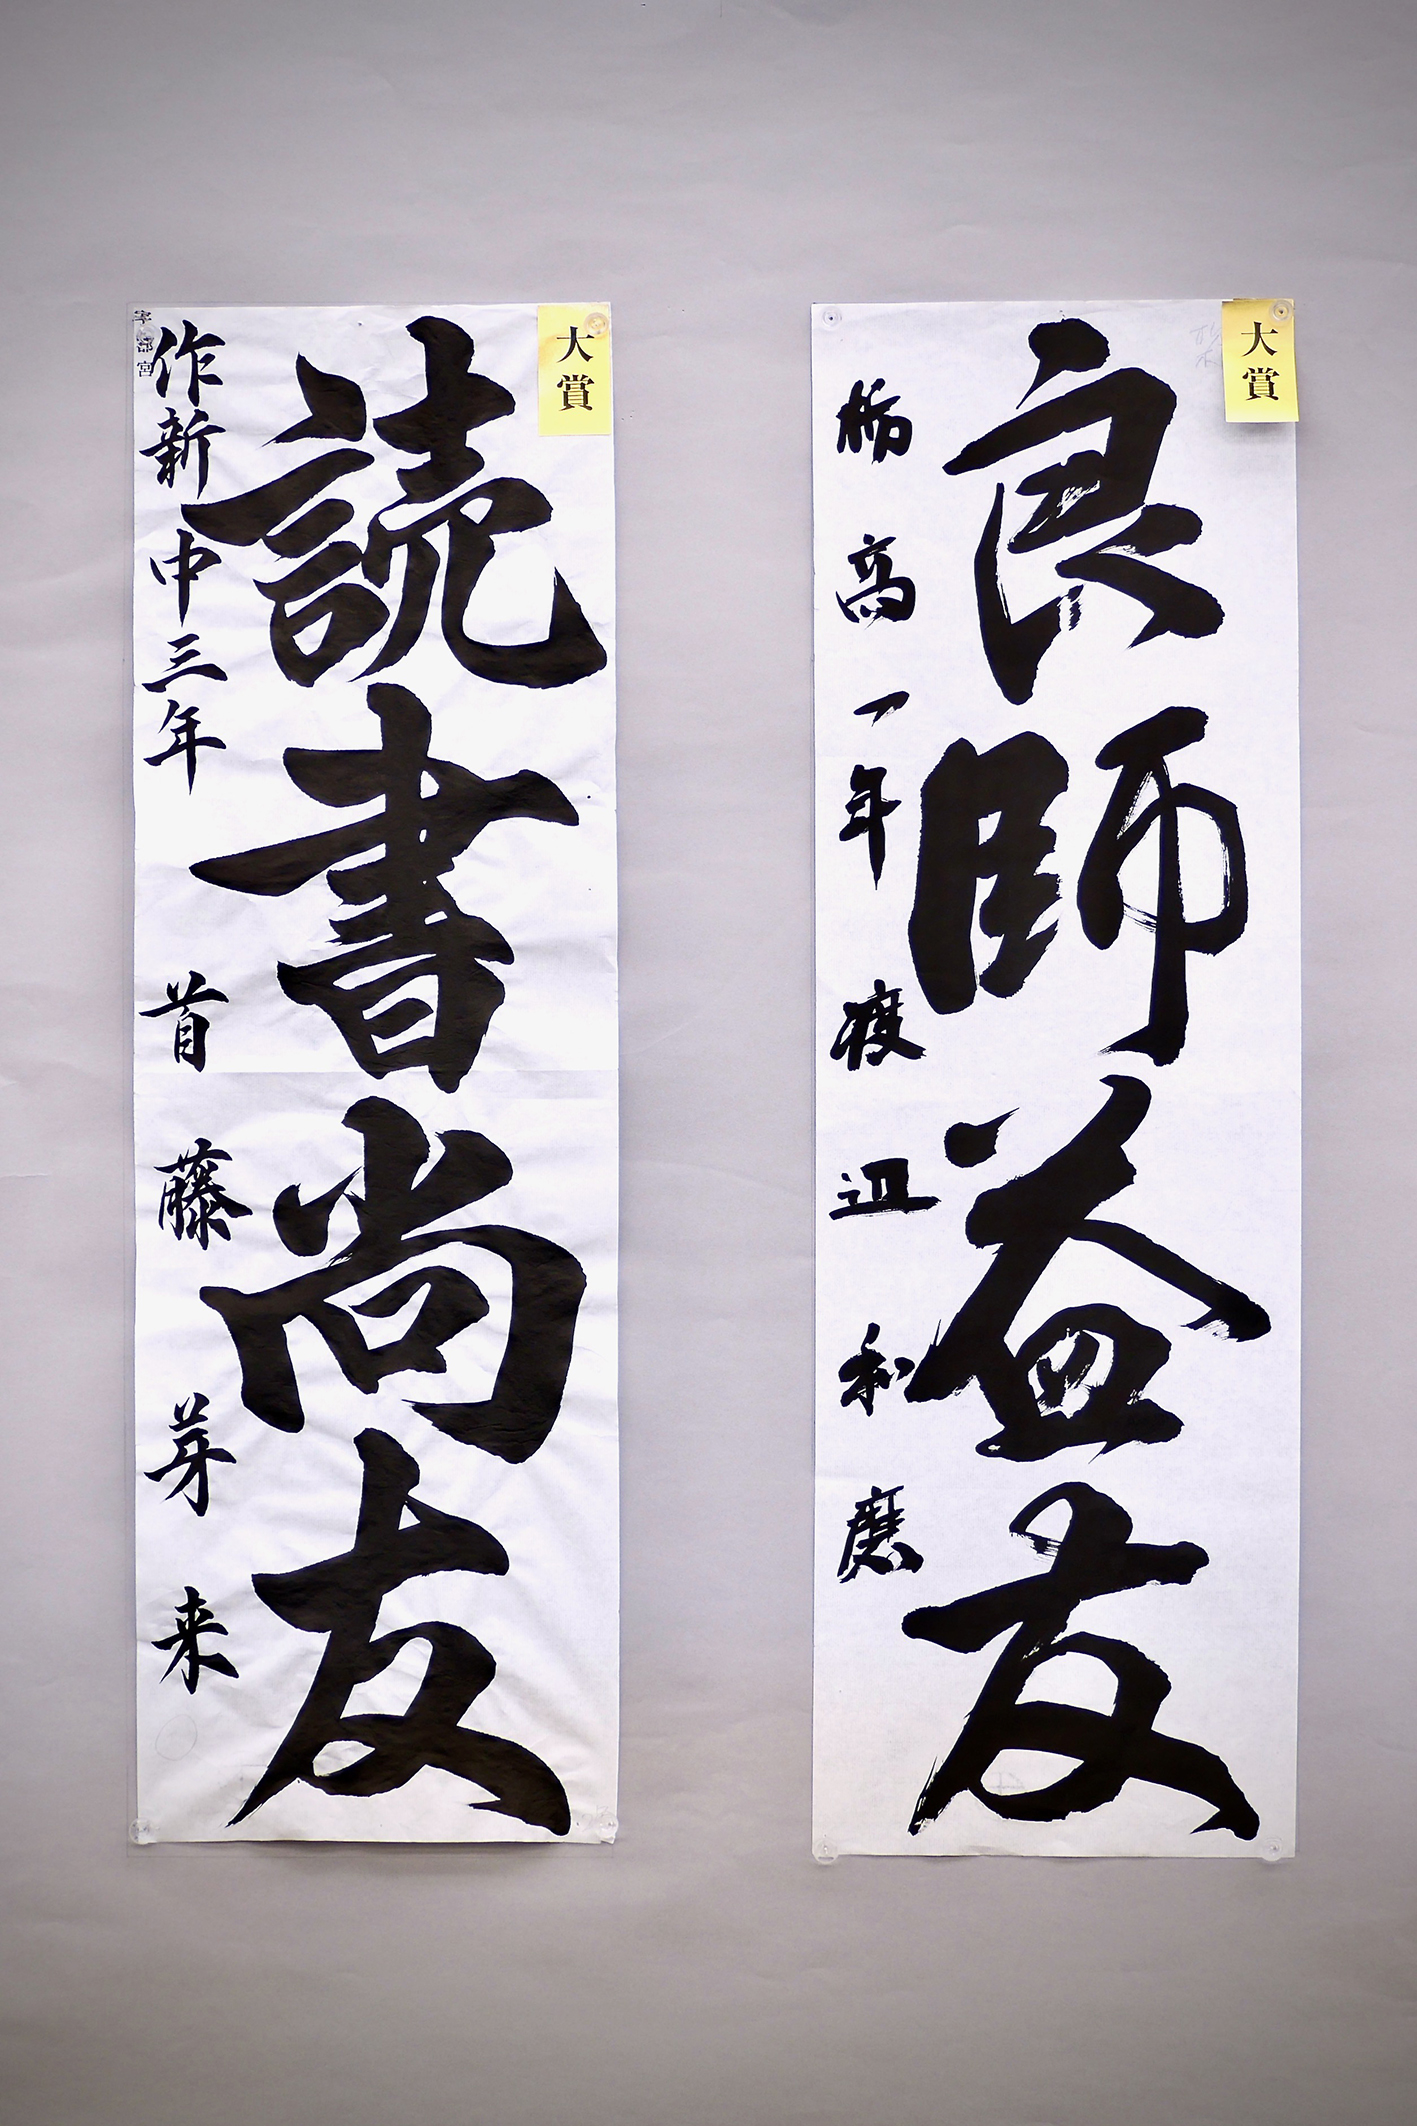 大賞
良師益友
栃高一年 渡辺和磨
大賞
読書尚友
作新中三年 首藤芽来
宇都宮